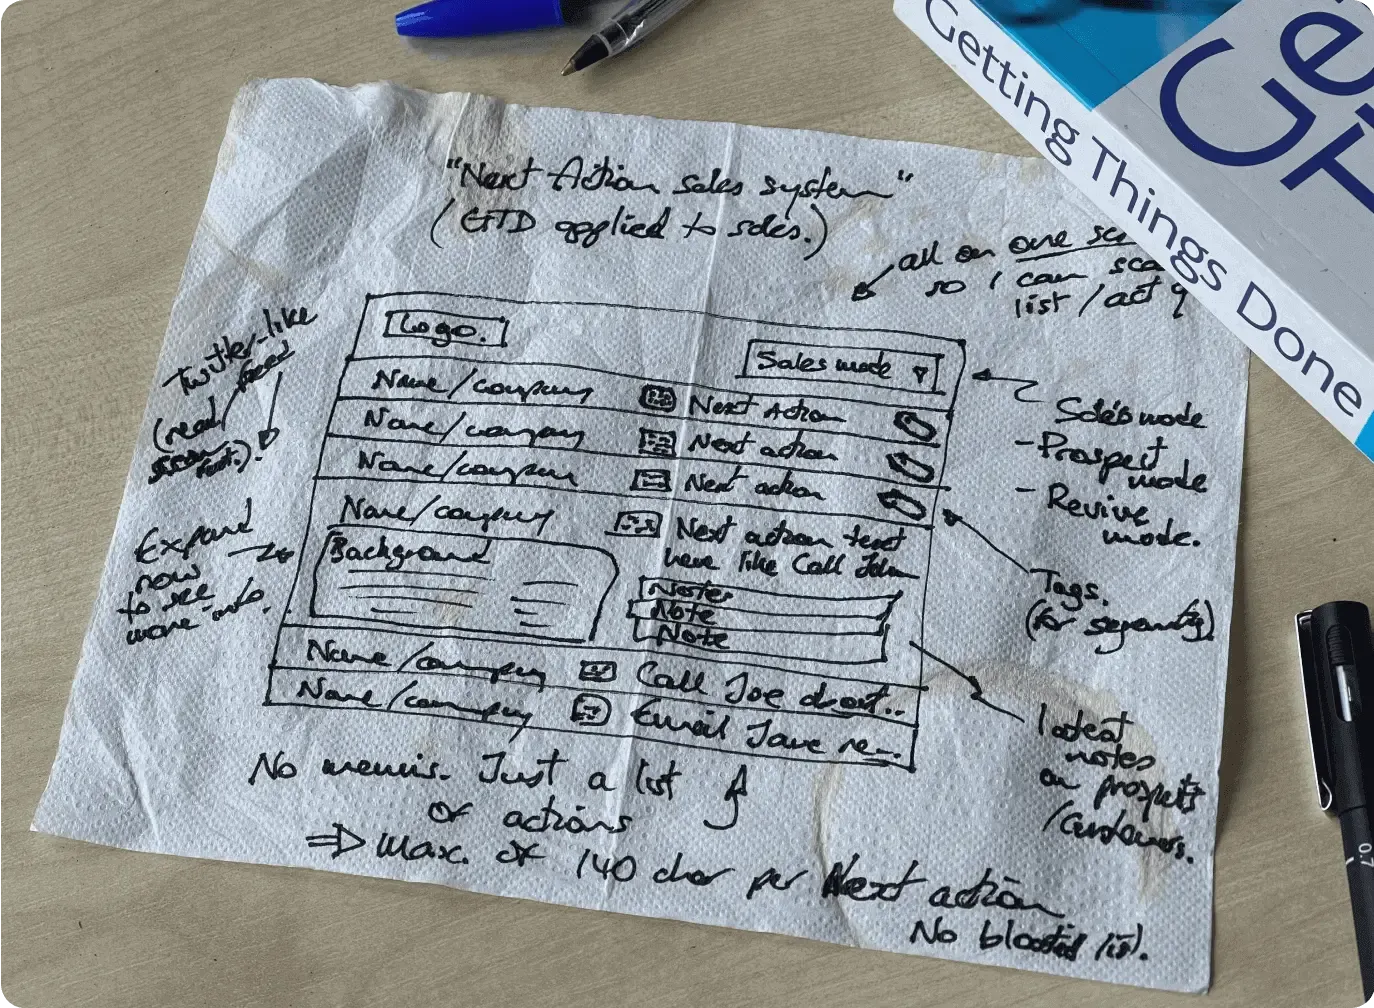 Getting Things Done
"Next Action sales system"
(GTD applied to sales.)
all on one
so I can
list / act
Logo.
Sales mode ▽
Name/company Next Action
Name/company Next action
Name/company Next action
Name/company Next action text
here like Call John
Background
Notes
Note
Note
Name/company Call Joe about..
Name/company Email Jane re...
Twitter-like
feed
(read/
scan
fast.).
Expand
row
to see
more info.
Sales mode
- Prospect
mode
- Revive
mode.
Tags.
(for segments)
latest
notes
on prospects
/customers.
No menus. Just a list
of actions
⇒ Max. of 140 char per Next action
No bloated
0.7